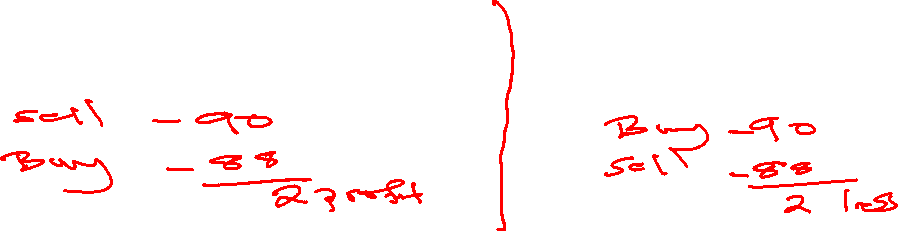 Sell - 90
Buy - 88
2 profit
Buy - 90
Sell - 88
2 loss